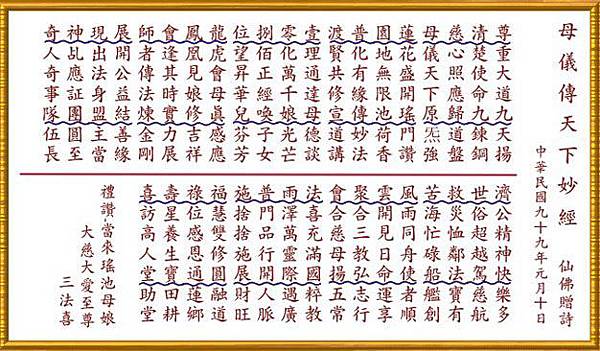 母儀傳天下妙經 仙佛贈詩
中華民國九十九年元月十日
尊重大道九天揚
清楚使命九鍊鋼
慈心照應歸道盤
母儀天下原炁強
蓮花盛開瑤門讚
園地無限池荷香
普化有緣妙傳法
渡賢共修宣道講
壹理通達母德談
零化萬千娘光芒
捌佰正經喚子女
位望昇華兒芬芳
龍虎會母真感應
鳳凰見娘修吉祥
會逢其時實力展
師者傳法煉金剛
展開公益結善緣
現出法身盟主當
神乩應証團圓至
奇人奇事隊伍長
濟公精神快樂多
世俗超越駕慈航
救災恤鄰法寶有
苦海忙碌船艦創
風雨同舟使者順
雲開見日命運享
聚合三教弘志行
會合慈母揚五常
法喜充滿國粹教
雨澤萬靈際遇廣
普門品行開人脈
施捨捨施展財旺
福慧雙修圓融道
祿位感恩通蓮鄉
壽星養生寶田耕
喜訪高人堂助堂
禮讚-當來瑤池母娘
大慈大愛至尊
三法喜